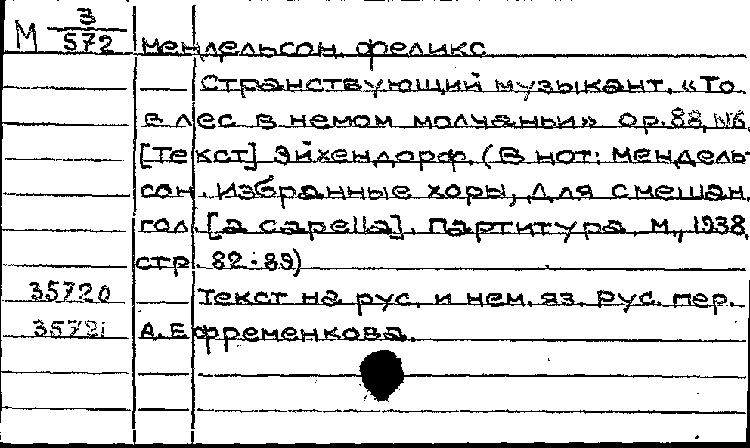 М 3/572 Мендельсон, Феликс
Странствующий музыкант. «То
в лес в немом молчаньи» ор.88, №6.
[Текст] Эйхендорф. (В нот: Мендель-
сон. Избранные хоры, для смешан.
гол. [a capella]. Партитура. М., 1938,
стр. 82-89)
35720 Текст на рус. и нем. яз. Рус. пер.
35721 А. Ефременкова.